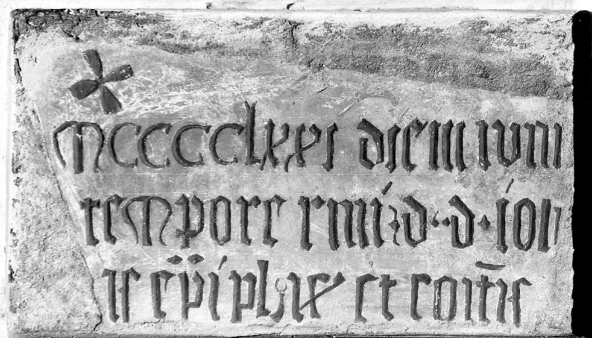 MCCCClxxi die iii iunii
tempore rmi d · d · ioh
is epi plac et coitis